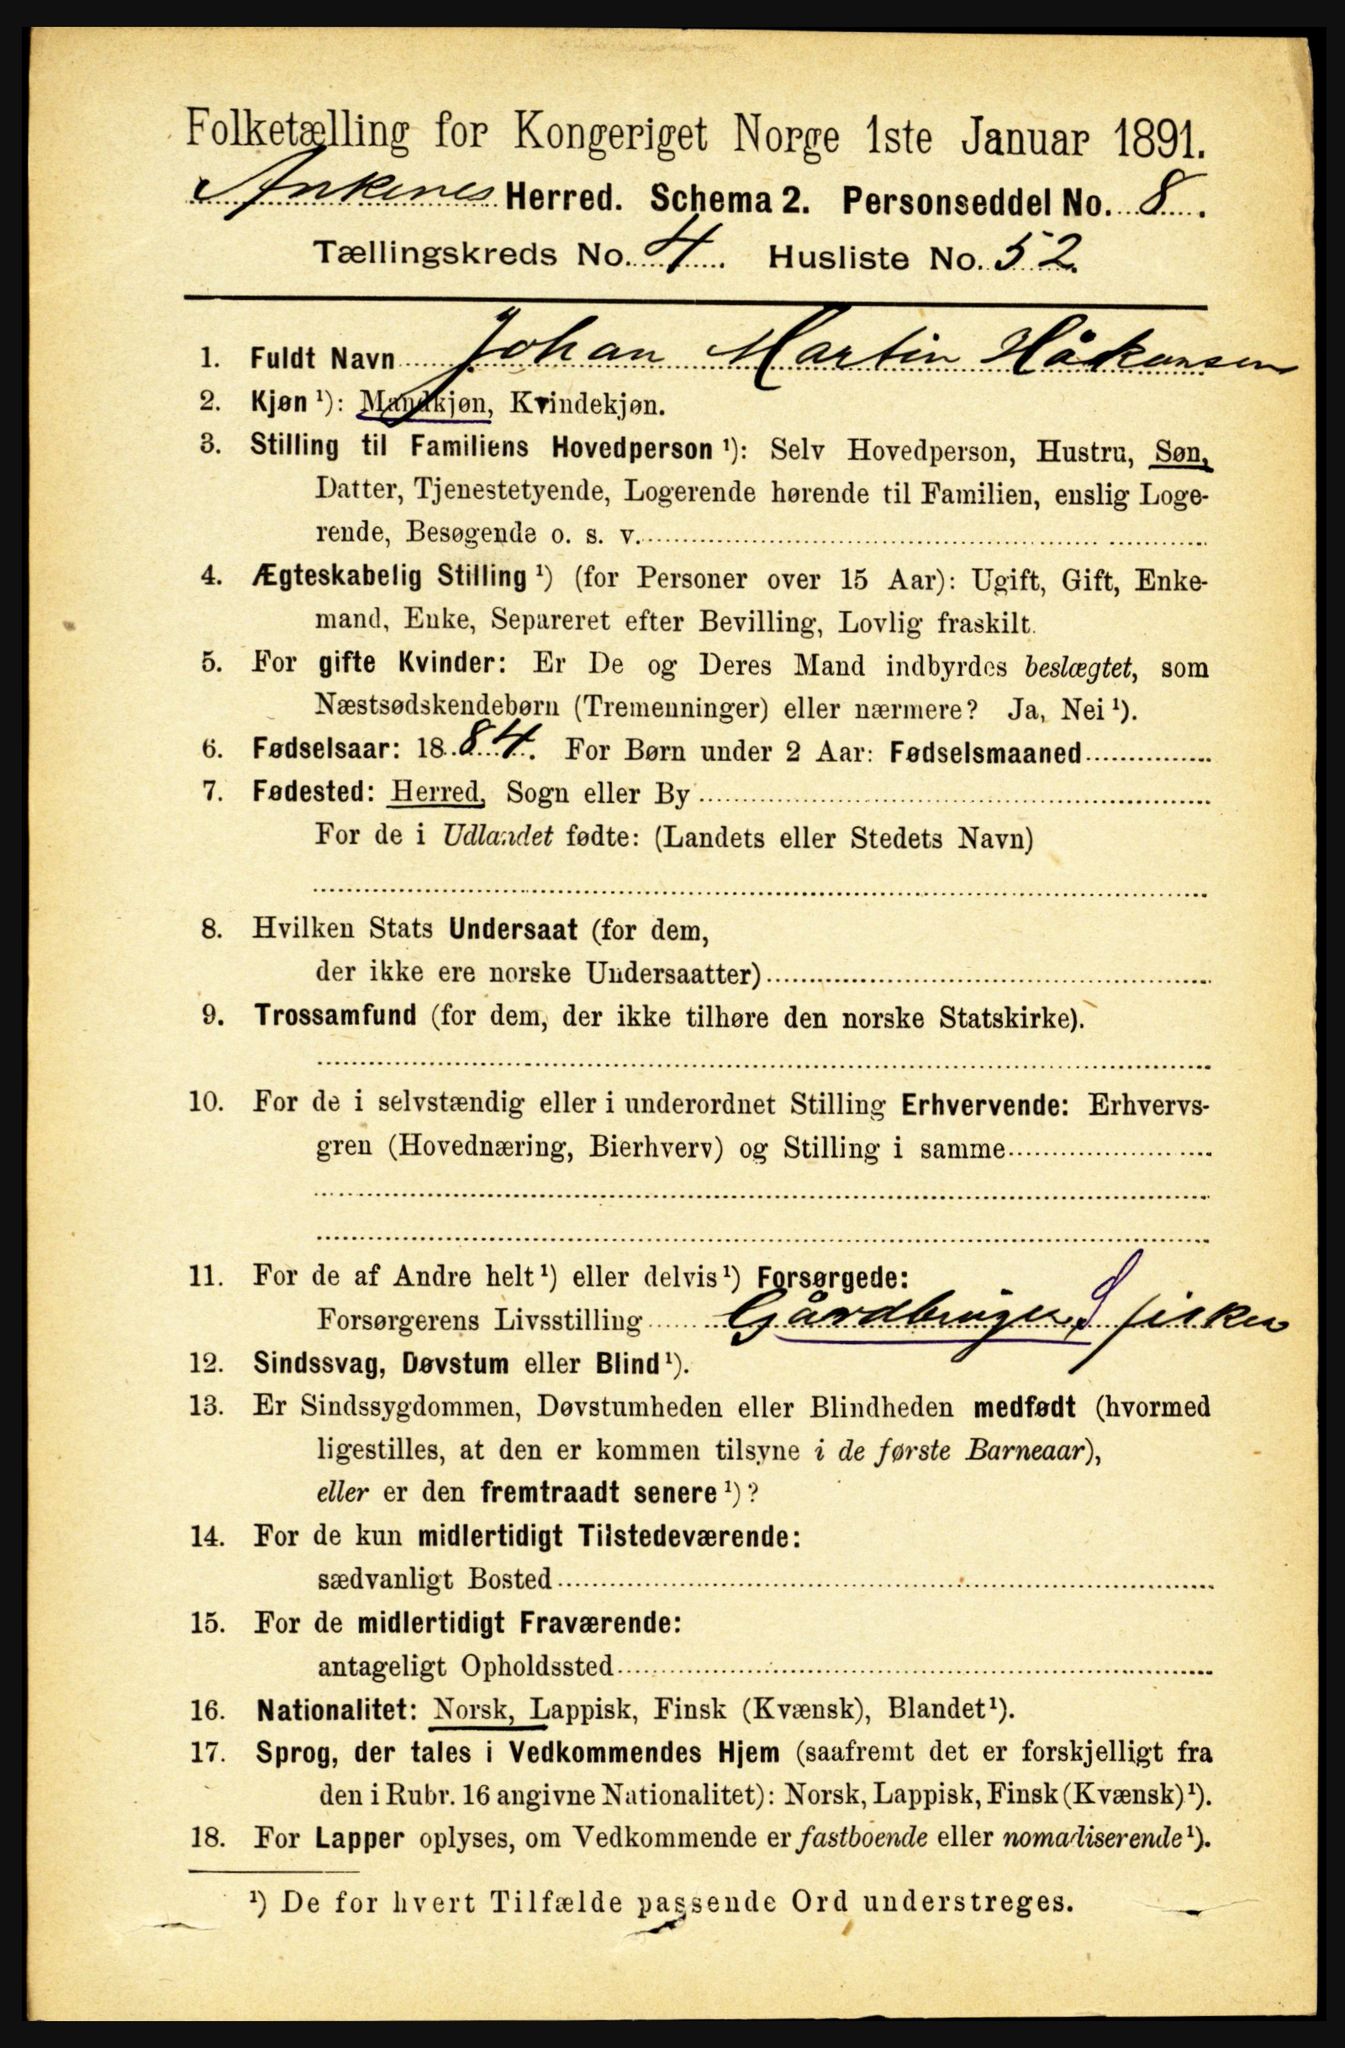 Folketælling for Kongeriget Norge 1ste Januar 1891.
Ankenes Herred. Schema 2. Personseddel No. 8.
Tællingskreds No. 4. Husliste No. 52.
1. Fuldt Navn Johan Martin Håkansen
2. Kjøn ¹): Mandkjøn, Kvindekjøn.
3. Stilling til Familiens Hovedperson ¹): Selv Hovedperson, Hustru, Søn,
Datter, Tjenestetyende, Logerende hørende til Familien, enslig Loge-
rende, Besøgende o. s. v.
4. Ægteskabelig Stilling ¹) (for Personer over 15 Aar): Ugift, Gift, Enke-
mand, Enke, Separeret efter Bevilling, Lovlig fraskilt.
5. For gifte Kvinder: Er De og Deres Mand indbyrdes beslægtet, som
Næstsødskendebørn (Tremenninger) eller nærmere? Ja, Nei ¹).
6. Fødselsaar: 1884. For Børn under 2 Aar: Fødselsmaaned
7. Fødested: Herred, Sogn eller By
For de i Udlandet fødte: (Landets eller Stedets Navn)
8. Hvilken Stats Undersaat (for dem,
der ikke ere norske Undersaatter)
9. Trossamfund (for dem, der ikke tilhøre den norske Statskirke).
10. For de i selvstændig eller i underordnet Stilling Erhvervende: Erhvervs-
gren (Hovednæring, Bierhverv) og Stilling i samme
11. For de af Andre helt ¹) eller delvis ¹) Forsørgede:
Forsørgerens Livsstilling Gårdbruger S fisker
12. Sindssvag, Døvstum eller Blind ¹).
13. Er Sindssygdommen, Døvstumheden eller Blindheden medfødt (hvormed
ligestilles, at den er kommen tilsyne i de første Barneaar),
eller er den fremtraadt senere ¹)?
14. For de kun midlertidigt Tilstedeværende:
sædvanligt Bosted
15. For de midlertidigt Fraværende:
antageligt Opholdssted
16. Nationalitet: Norsk, Lappisk, Finsk (Kvænsk), Blandet ¹).
17. Sprog, der tales i Vedkommendes Hjem (saafremt det er forskjelligt fra
den i Rubr. 16 angivne Nationalitet): Norsk, Lappisk, Finsk (Kvænsk) ¹).
18. For Lapper oplyses, om Vedkommende er fastboende eller nomadiserende ¹).
¹) De for hvert Tilfælde passende Ord understreges.